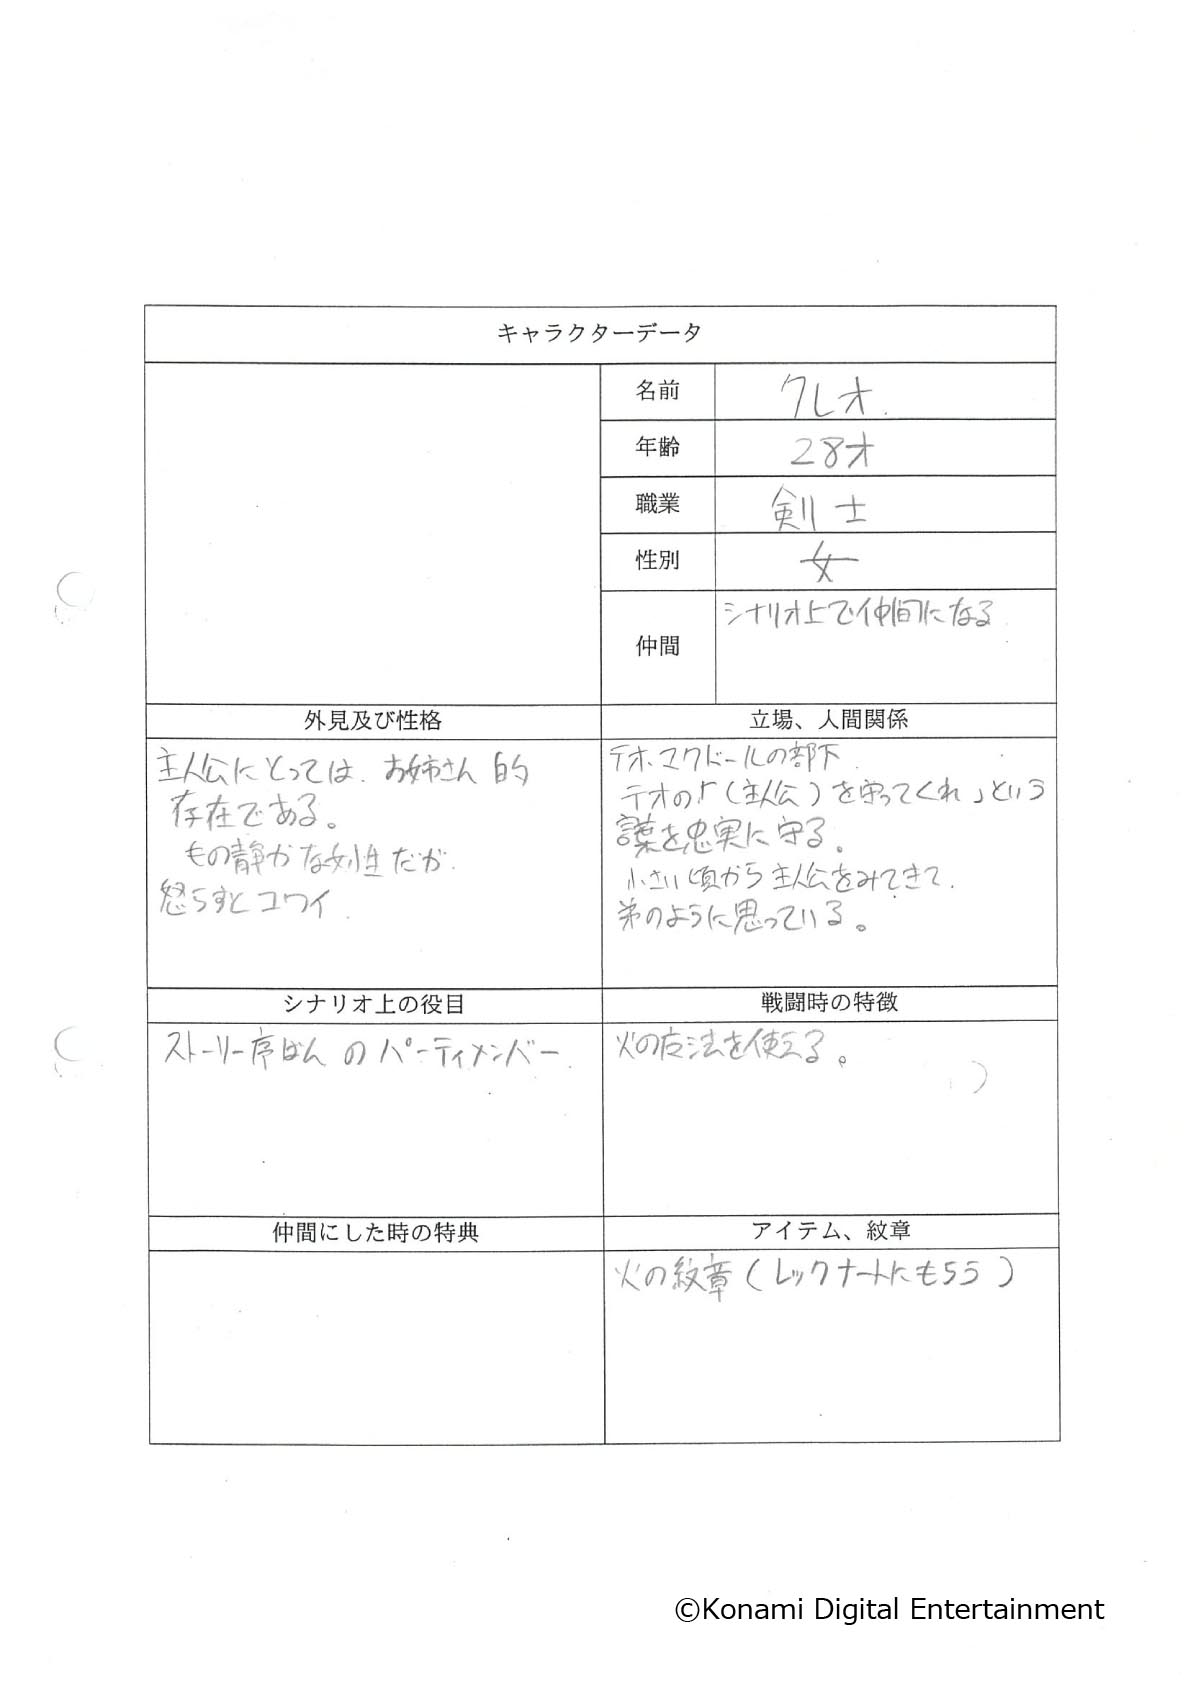 キャラクターデータ
名前
クレオ.
年齢
28才
職業
剣士
性別
女
仲間
シナリオ上で仲間になる
外見及び性格
主人公にとっては、お姉さん的
存在である。
もの静かな女性だが、
怒らすとコワイ.
立場、人間関係
テオ・マクドールの部下.
テオの「(主人公)を守ってくれ」という
言葉を忠実に守る。
小さい頃から主人公をみてきて、
弟のように思っている。
シナリオ上の役目
ストーリー序ばんのパーティメンバー.
戦闘時の特徴
火の魔法を使える。
仲間にした時の特典
アイテム、紋章
火の紋章(レックナートにもらう)
©Konami Digital Entertainment